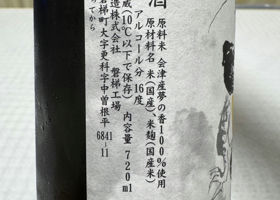 酒
原料米 会津産夢の香100%使用
原材料名 米(国産)、米麹(国産米)
アルコール分 16度
蔵(10℃以下で保存) 内容量 720ml
造株式会社 磐梯工場
磐梯町大字更科字中曽根平 6841-11
てから